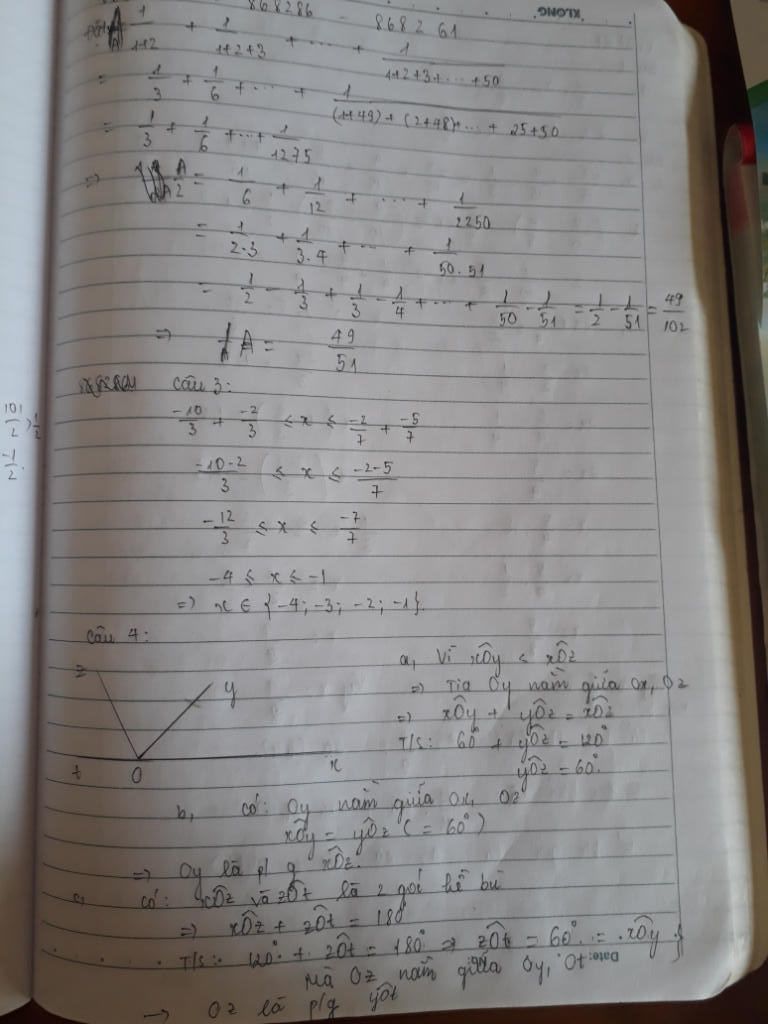 KLONG
868286 - 868261
A 1/1+2 + 1/1+2+3 + ... + 1/1+2+3+...+50
= 1/3 + 1/6 + ... + 1/(1+49)+(2+48)+...+25+50
= 1/3 + 1/6 + ... + 1/1275
=> A/2 = 1/6 + 1/12 + ... + 1/2250
= 1/2.3 + 1/3.4 + ... + 1/50.51
= 1/2 - 1/3 + 1/3 - 1/4 + ... + 1/50 - 1/51 = 1/2 - 1/51 = 49/102
=> A = 49/51
Câu 3:
-10/3 + -2/3 ≤ x ≤ -2/7 + -5/7
-10-2/3 ≤ x ≤ -2-5/7
-12/3 ≤ x ≤ -7/7
-4 ≤ x ≤ -1
=> x ∈ {-4; -3; -2; -1}.
Câu 4:
z
y
t O x
a, Vì xÔy < xÔz
=> Tia Oy nằm giữa Ox, Oz
=> xÔy + yÔz = xÔz
T/s: 60° + yÔz = 120°
yÔz = 60°.
b, Có: Oy nằm giữa Ox, Oz
xÔy = yÔz (= 60°)
=> Oy là p/g xÔz.
c, Có: xÔz và zÔt là 2 góc kề bù
=> xÔz + zÔt = 180°
T/s: 120° + zÔt = 180° => zÔt = 60° = xÔy }
Mà Oz nằm giữa Oy, Ot
Date:
=> Oz là p/g yÔt
101/2 1/2
-1/2.